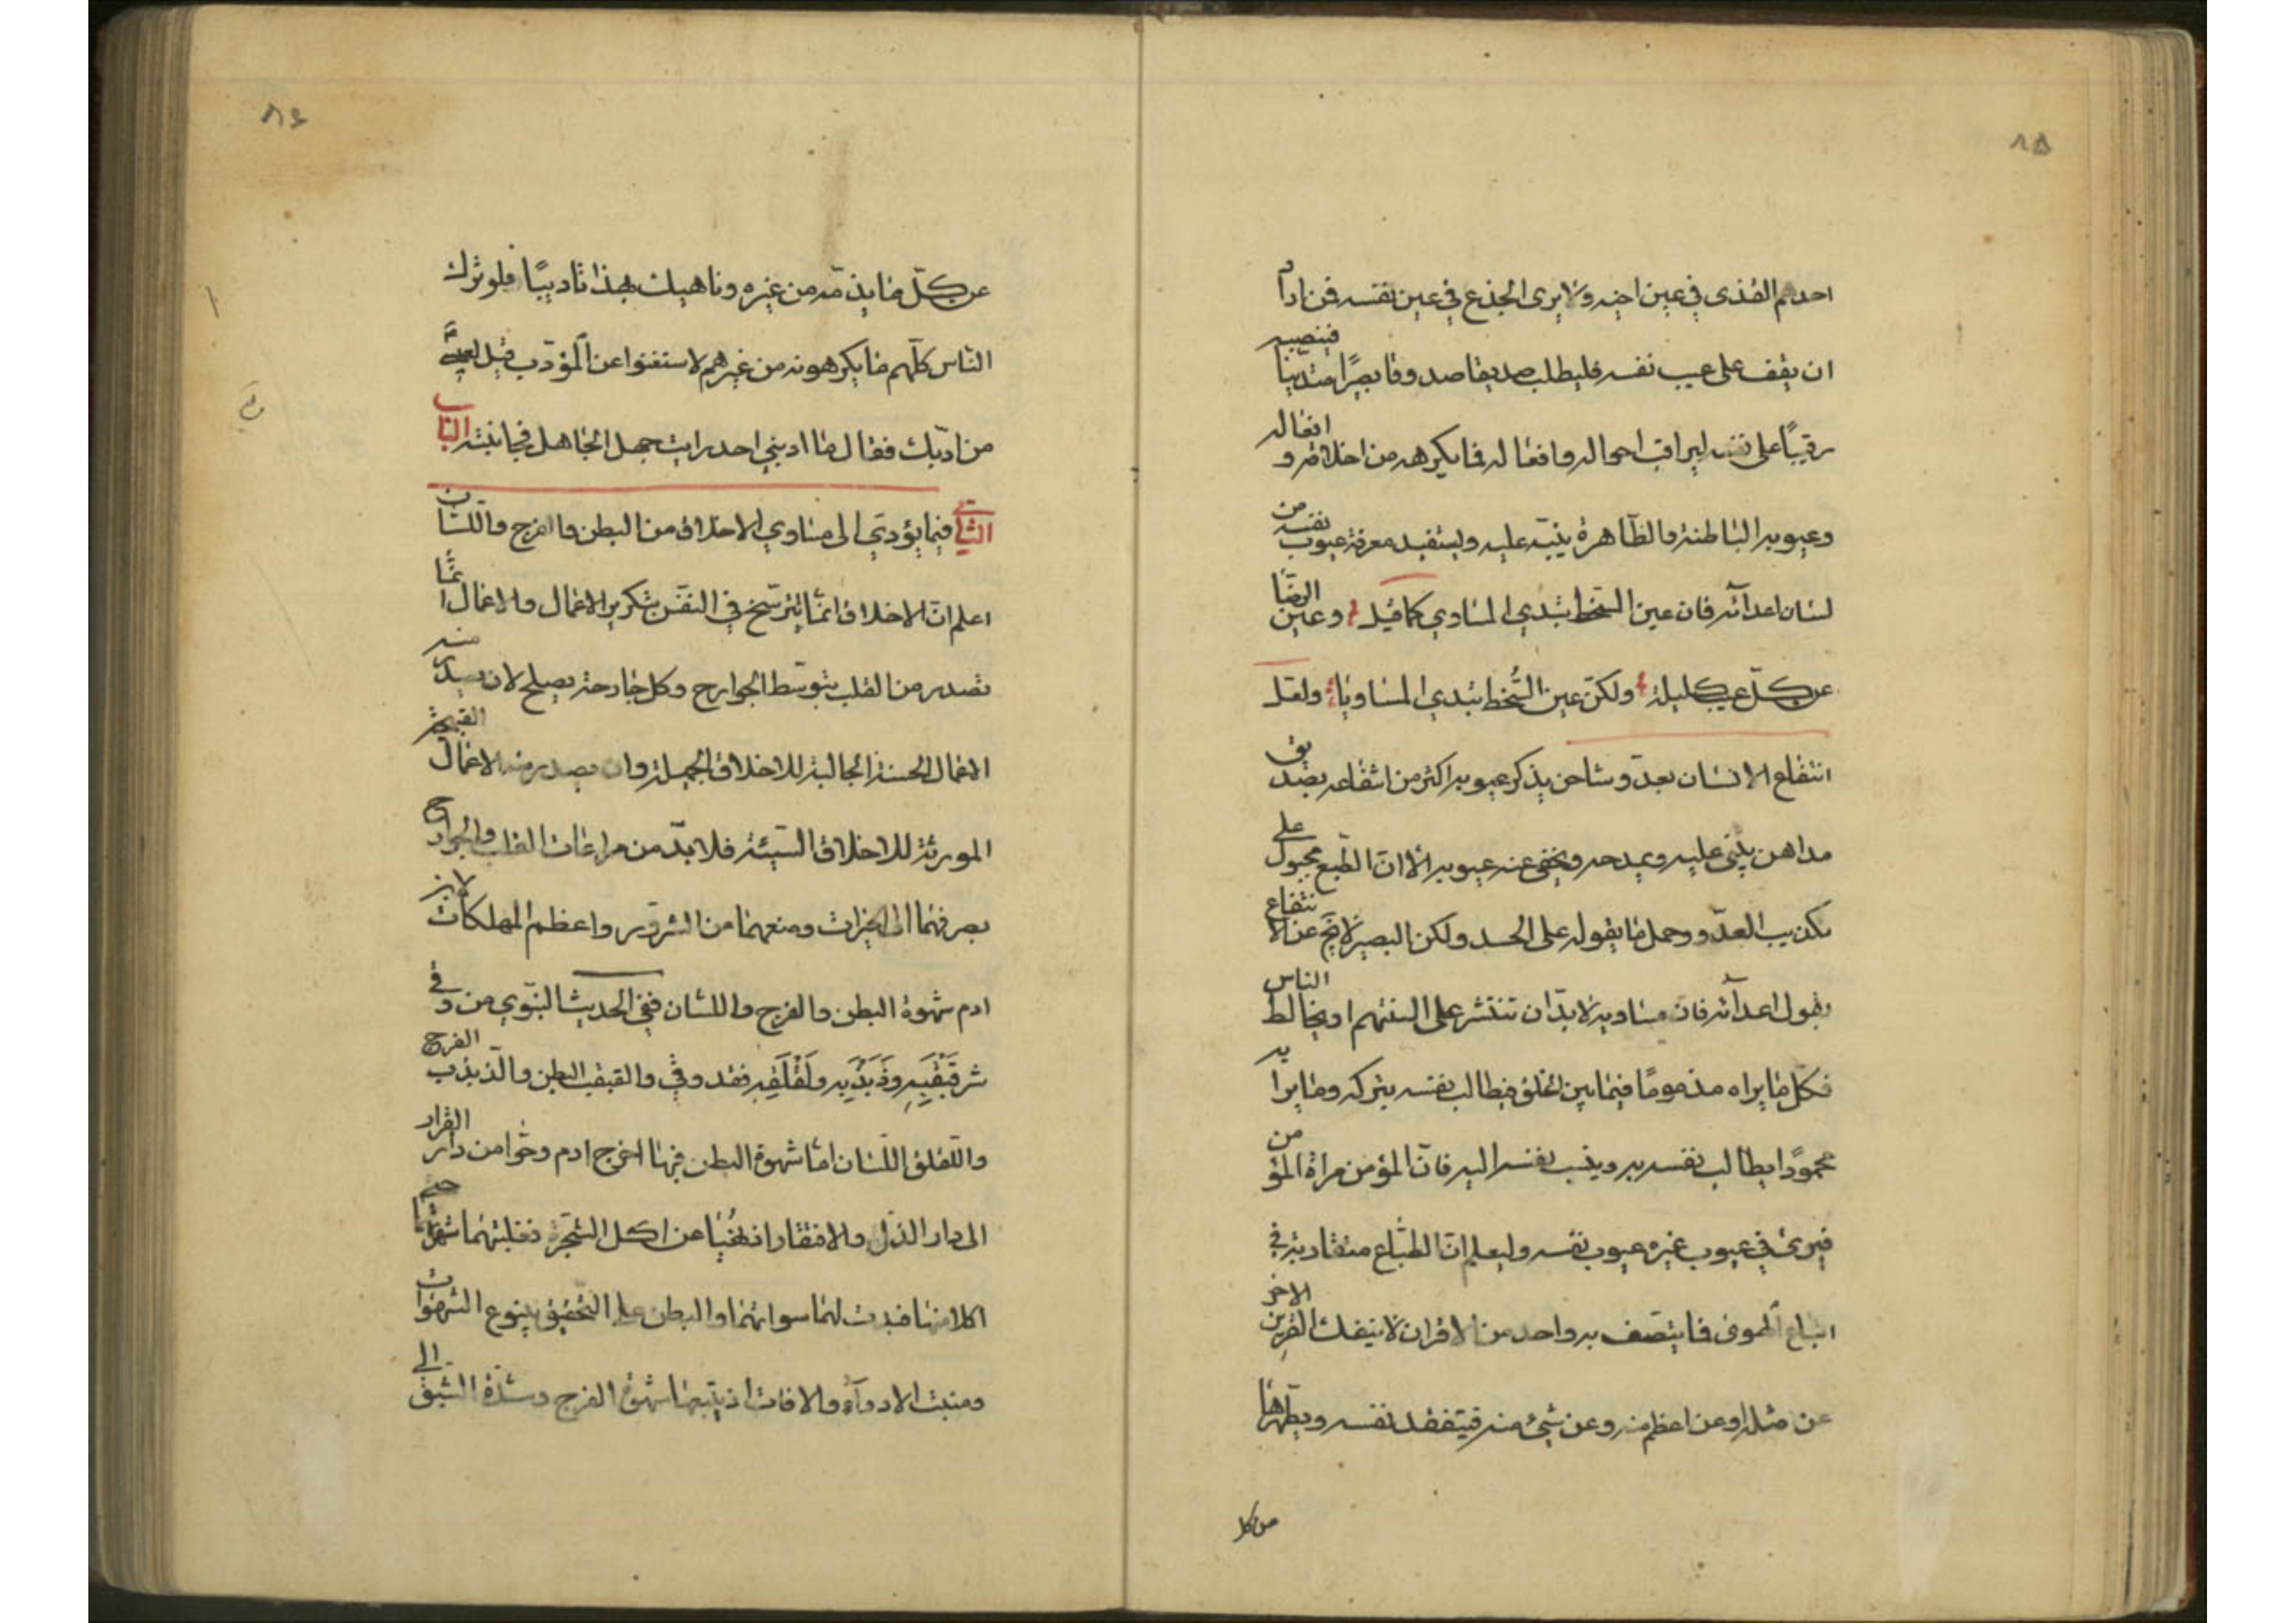 ٨٥
احدهم القذى في عين اخيه ولا يرى الجذع في عين نفسه فمن اراد
ان يقف على عيب نفسه فليطلب صديقا صدوقا بصيرًا متدينا فينصبه
رقيبًا على نفسه ليراقب احواله وافعاله فما يكرهه من اخلاقه و افعاله
وعيوبه الباطنة والظاهرة ينبّه عليه وليستفيد معرفة عيوب نفسه من
لسان اعدآئه فان عين السّخط تبدي المساوي كما قيل وعين الرضا
عن كلّ عيب كليلة ولكن عين السُّخط تبدي المساويا ولعل
انتفاع الانسان بعدوّ مشاحن يذكر عيوبه اكثر من انتفاعه بصديق
مداهن يثنى عليه ويمدحه ويخفى عنه عيوبه الّا انّ الطّبع مجبول على
تكذيب العدّو وحمل ما يقوله على الحسد ولكن البصير لا يخ عن الانتفاع
بقول اعدآئه فان مساويه لا بدّ ان تنتشر على السنتهم او يخالط الناس
فكل ما يراه مذمومًا فيما بين الخلق فيطالب نفسه بتركه وما يراه
محمودًا يطالب نفسه به وينسب نفسه اليه فانّ المؤمن مراة المؤمن
فيرى في عيوب غيره عيوب نفسه وليعلم انّ الطّباع متقاربة في
اتباع الهوى فما يتّصف به واحد من الاقران لا ينفك القرين الاخر
عن مثله او عن اعظم منه وعن شئ منه فيتفقد نفسه ويطهّرها
من كل
٨٤
عن كلّ ما يذمّه من غيره وناهيك بهذا تاديبًا فلو ترك
النّاس كلّهم ما يكرهونه من غيرهم لاستغنوا عن المؤدّب قيل لعيسى
من ادّبك فقال ما ادبني احد رايت جهل الجاهل فجانبته الباب
الثاني فيما يؤدي الى مساوي الاخلاق من البطن والفرج واللّسان
اعلم انّ الاخلاق انمّا تترسّخ في النفس بتكرير الاعمال والاعمال انما
تصدر من القلب بتوسّط الجوارح وكل جارحة يصلح لان يصدر منه
الاعمال الحسنة الجالبة للاخلاق الجميلة وان يصدر منه الاعمال القبيحة
المورثة للاخلاق السّيئة فلا بدّ من مراعات القلب والجوارح
بصرفهما الى الخيرات ومنعهما من الشرور واعظم المهلكات لابن
ادم شهوة البطن والفرج واللسان ففي الحديث النبّوي من وقى
شر قَبْقَبِهِ وذَبَذَبِه ولَقْلَقِهِ فقد وقى والقبقب البطن والذّبذب الفرج
واللّقلق اللّسان امّا شهوة البطن فبها اخرج ادم وحّوا من دار القرار
الى دار الذّل والافتقار اذ نُهيا عن اكل الشّجرة فغلبتهما شهوتهما حتى
اكلا منها فبدت لهما سواتهما والبطن على التحقيق ينبوع الشهوات
ومنبت الادوآء والافات اذ يتبعها شهوة الفرج وشدّة الشبق الى